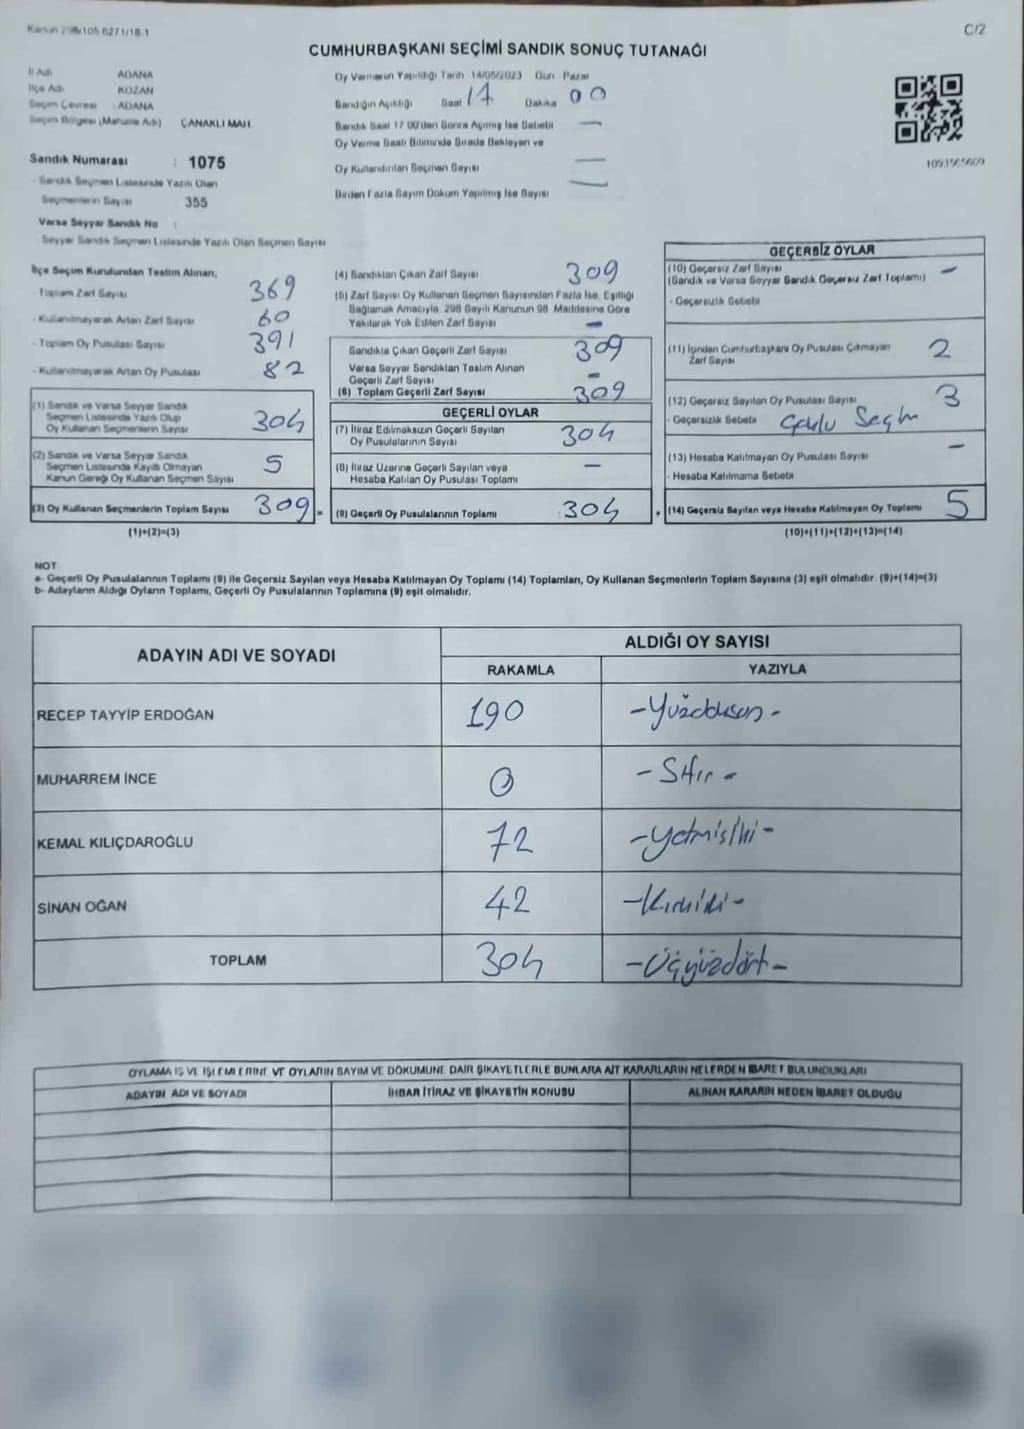 Kanun 298/105 6271/18.1
C/2
CUMHURBAŞKANI SEÇİMİ SANDIK SONUÇ TUTANAĞI
İl Adı ADANA
İlçe Adı KOZAN
Seçim Çevresi : ADANA
Seçim Bölgesi (Mahalle Adı) ÇANAKLI MAH.
Sandık Numarası : 1075
- Sandık Seçmen Listesinde Yazılı Olan
Seçmenlerin Sayısı 355
Varsa Seyyar Sandık No :
- Seyyar Sandık Seçmen Listesinde Yazılı Olan Seçmen Sayısı
Oy Vermenin Yapıldığı Tarih 14/05/2023 Gün Pazar
Sandığın Açıldığı Saat 17 Dakika 00
Sandık Saat 17.00'den Sonra Açılmış İse Sebebi —
Oy Verme Saati Bitiminde Sırada Bekleyen ve
Oy Kullandırılan Seçmen Sayısı —
Birden Fazla Sayım Döküm Yapılmış İse Sayısı —
İlçe Seçim Kurulundan Teslim Alınan,
- Toplam Zarf Sayısı 369
- Kullanılmayarak Artan Zarf Sayısı 60
- Toplam Oy Pusulası Sayısı 391
- Kullanılmayarak Artan Oy Pusulası 82
(1) Sandık ve Varsa Seyyar Sandık
Seçmen Listesinde Yazılı Olup
Oy Kullanan Seçmenlerin Sayısı 304
(2) Sandık ve Varsa Seyyar Sandık
Seçmen Listesinde Kayıtlı Olmayan
Kanun Gereği Oy Kullanan Seçmen Sayısı 5
(3) Oy Kullanan Seçmenlerin Toplam Sayısı 309
(1)+(2)=(3)
(4) Sandıktan Çıkan Zarf Sayısı 309
(5) Zarf Sayısı Oy Kullanan Seçmen Sayısından Fazla İse, Eşitliği
Sağlamak Amacıyla, 298 Sayılı Kanunun 98. Maddesine Göre
Yakılarak Yok Edilen Zarf Sayısı —
Sandıkta Çıkan Geçerli Zarf Sayısı 309
Varsa Seyyar Sandıktan Teslim Alınan
Geçerli Zarf Sayısı —
(6) Toplam Geçerli Zarf Sayısı 309
GEÇERLİ OYLAR
(7) İtiraz Edilmeksizin Geçerli Sayılan
Oy Pusulalarının Sayısı 304
(8) İtiraz Üzerine Geçerli Sayılan veya
Hesaba Katılan Oy Pusulası Toplamı —
(9) Geçerli Oy Pusulalarının Toplamı : 304
GEÇERSİZ OYLAR
(10) Geçersiz Zarf Sayısı —
(Sandık ve Varsa Seyyar Sandık Geçersiz Zarf Toplamı)
- Geçersizlik Sebebi
(11) İçinden Cumhurbaşkanı Oy Pusulası Çıkmayan
Zarf Sayısı 2
(12) Geçersiz Sayılan Oy Pusulası Sayısı 3
- Geçersizlik Sebebi
(13) Hesaba Katılmayan Oy Pusulası Sayısı —
- Hesaba Katılmama Sebebi
(14) Geçersiz Sayılan veya Hesaba Katılmayan Oy Toplamı 5
(10)+(11)+(12)+(13)=(14)
NOT
a- Geçerli Oy Pusulalarının Toplamı (9) ile Geçersiz Sayılan veya Hesaba Katılmayan Oy Toplamı (14) Toplamları, Oy Kullanan Seçmenlerin Toplam Sayısına (3) eşit olmalıdır. (9)+(14)=(3)
b- Adayların Aldığı Oyların Toplamı, Geçerli Oy Pusulalarının Toplamına (9) eşit olmalıdır.
ADAYIN ADI VE SOYADI
ALDIĞI OY SAYISI
RAKAMLA YAZIYLA
RECEP TAYYİP ERDOĞAN 190 -Yüzdoksan-
MUHARREM İNCE 0 -Sıfır-
KEMAL KILIÇDAROĞLU 72 -yetmişiki-
SİNAN OĞAN 42 -Kırkiki-
TOPLAM 304 -Üçyüzdört-
OYLAMA İŞ VE İŞLEMLERİNE VE OYLARIN SAYIM VE DÖKÜMÜNE DAİR ŞİKAYETLERLE BUNLARA AİT KARARLARIN NELERDEN İBARET BULUNDUKLARI
ADAYIN ADI VE SOYADI İHBAR İTİRAZ VE ŞİKAYETİN KONUSU ALINAN KARARIN NEDEN İBARET OLDUĞU